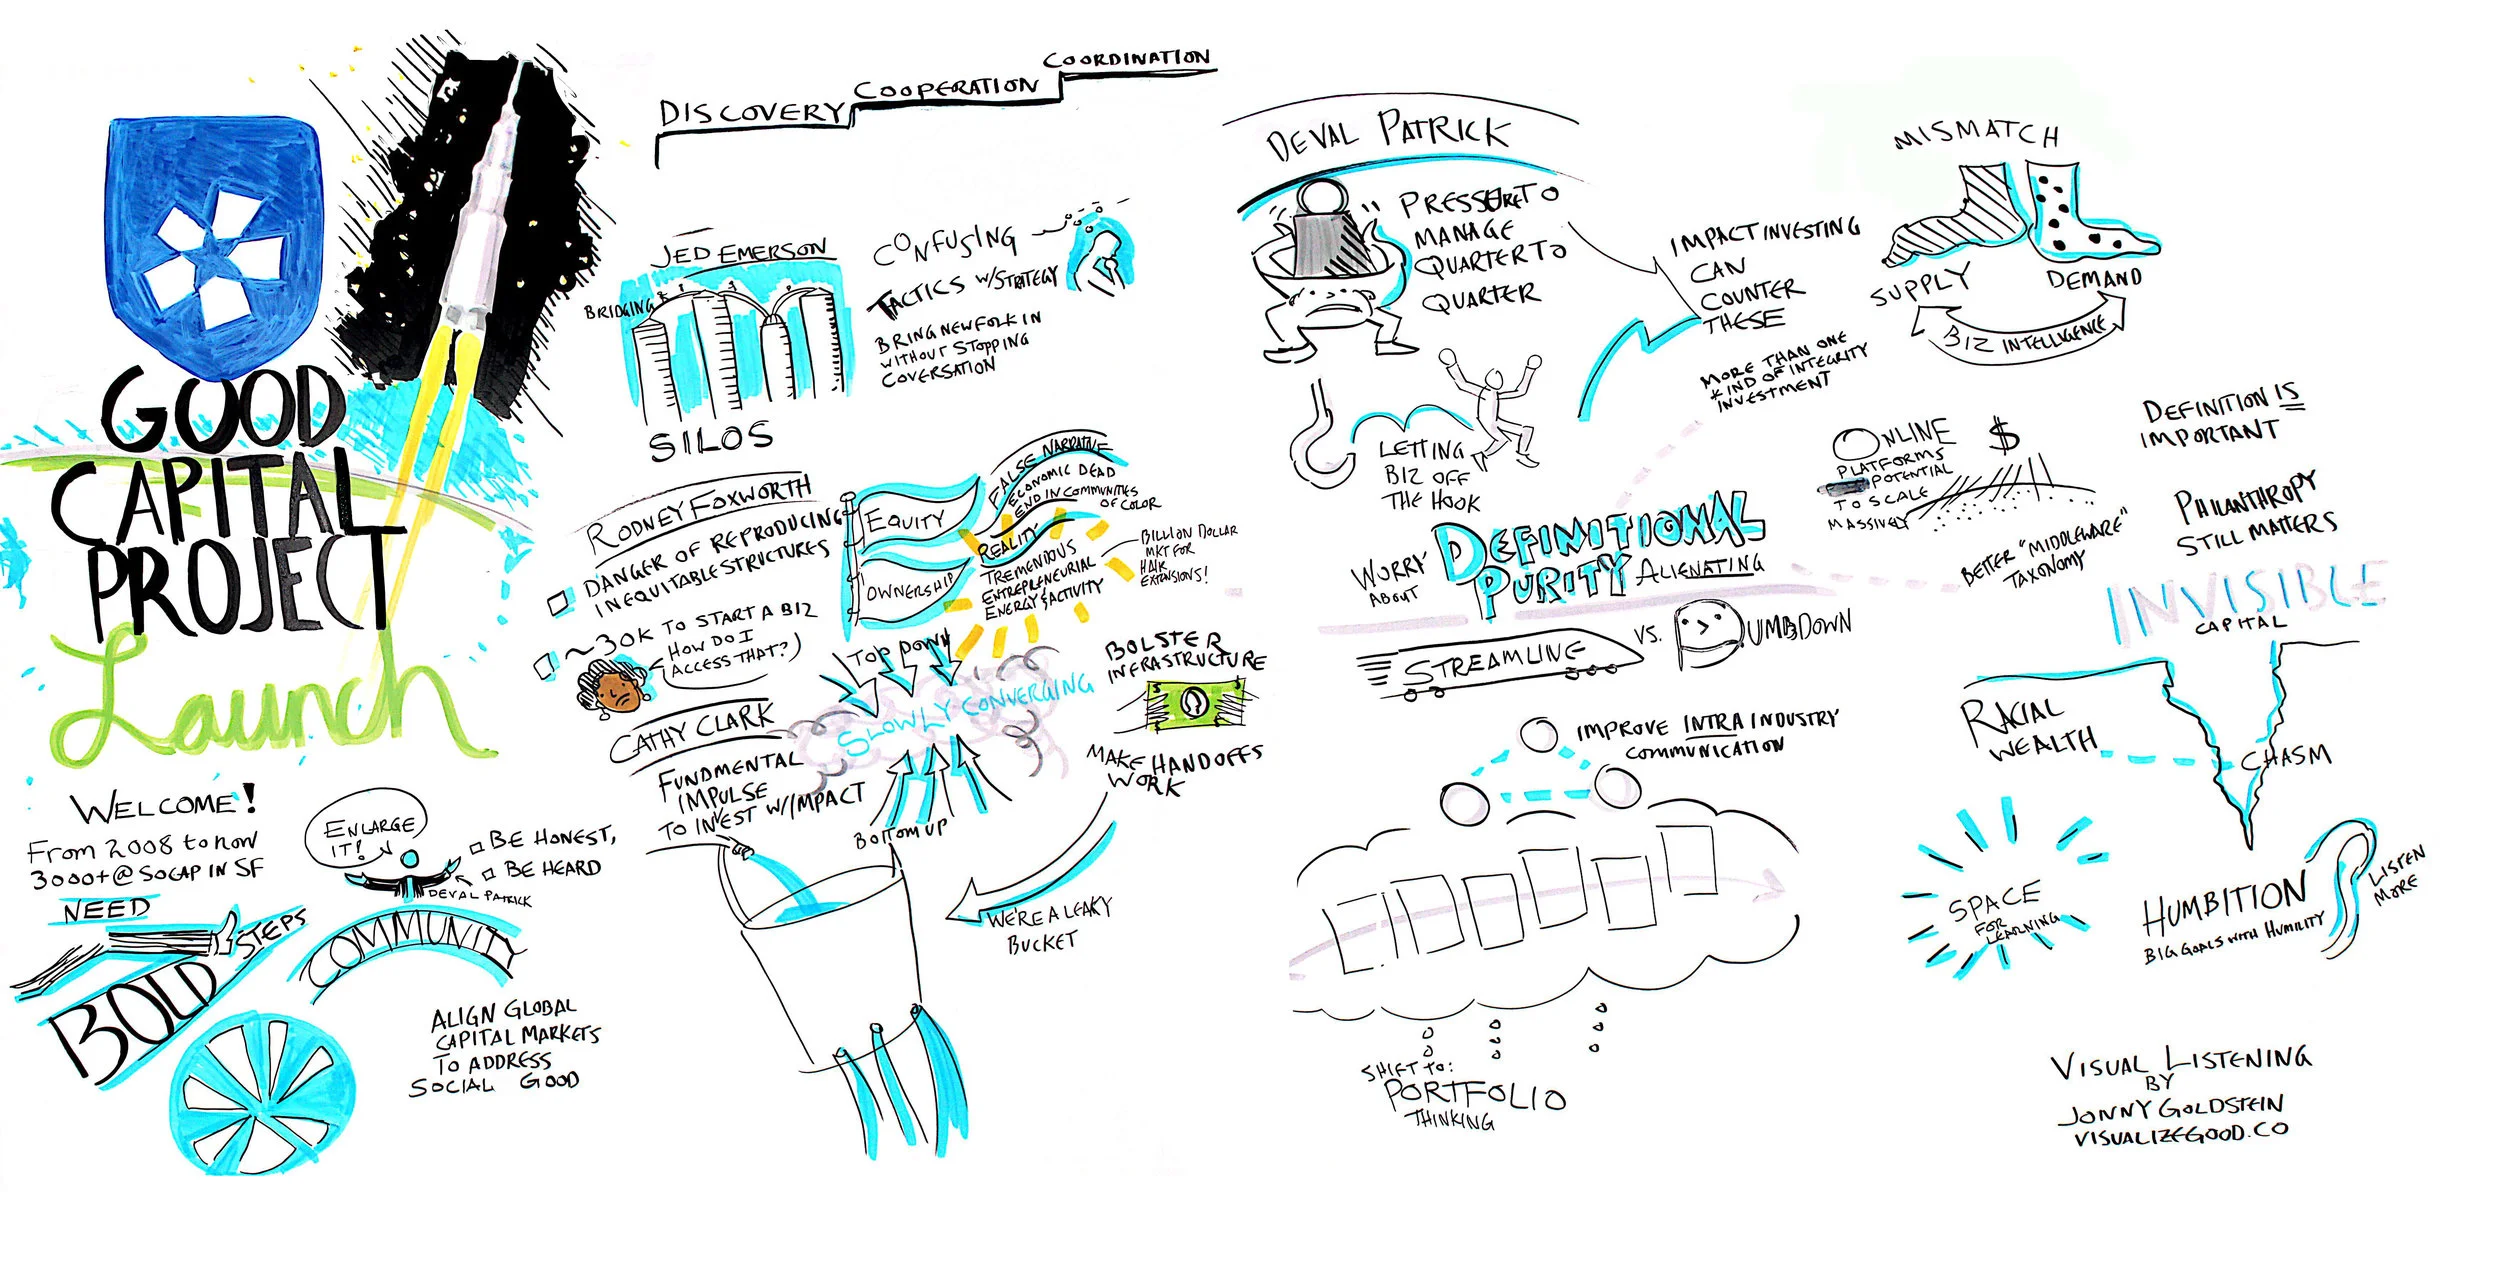 GOOD
CAPITAL
PROJECT
Launch
WELCOME!
From 2008 to now
3000+ @ SOCAP IN SF
NEED
BOLD
STEPS
ENLARGE
IT!
BE HONEST,
BE HEARD
DEVAL PATRICK
COMMUNITY
ALIGN GLOBAL
CAPITAL MARKETS
TO ADDRESS
SOCIAL GOOD
DISCOVERY
COOPERATION
COORDINATION
JED EMERSON
BRIDGING
SILOS
CONFUSING
TACTICS W/STRATEGY
BRING NEW FOLK IN
WITHOUT STOPPING
COVERSATION
RODNEY FOXWORTH
DANGER OF REPRODUCING
INEQUITABLE STRUCTURES
~30K TO START A BIZ
HOW DO I
ACCESS THAT?)
EQUITY
OWNERSHIP
FALSE NARRATIVE
ECONOMIC DEAD
END IN COMMUNITIES
OF COLOR
REALITY
TREMENDOUS
ENTREPRENEURIAL
ENERGY & ACTIVITY
BILLION DOLLAR
MKT FOR
HAIR
EXTENSIONS!
CATHY CLARK
FUNDMENTAL
IMPULSE
TO INVEST W/IMPACT
TOP DOWN
SLOWLY CONVERGING
BOTTOM UP
BOLSTER
INFRASTRUCTURE
MAKE HANDOFFS
WORK
WE'RE A LEAKY
BUCKET
DEVAL PATRICK
PRESSURE TO
MANAGE
QUARTER TO
QUARTER
IMPACT INVESTING
CAN
COUNTER
THESE
LETTING
BIZ OFF
THE HOOK
MORE THAN ONE
KIND OF INTEGRITY
INVESTMENT
WORRY
ABOUT
DEFINITIONAL
PURITY ALIENATING
STREAMLINE VS. DUMBDOWN
IMPROVE INTRA INDUSTRY
COMMUNICATION
SHIFT TO:
PORTFOLIO
THINKING
MISMATCH
SUPPLY
DEMAND
BIZ INTELLIGENCE
ONLINE
PLATFORMS
POTENTIAL
TO SCALE
MASSIVELY
$
BETTER "MIDDLEWARE"
TAXONOMY
DEFINITION IS
IMPORTANT
PHILANTHROPY
STILL MATTERS
INVISIBLE
CAPITAL
RACIAL
WEALTH
CHASM
SPACE
FOR
LEARNING
HUMBITION
BIG GOALS WITH HUMILITY
LISTEN
MORE
VISUAL LISTENING
BY
JONNY GOLDSTEIN
VISUALIZEGOOD.CO